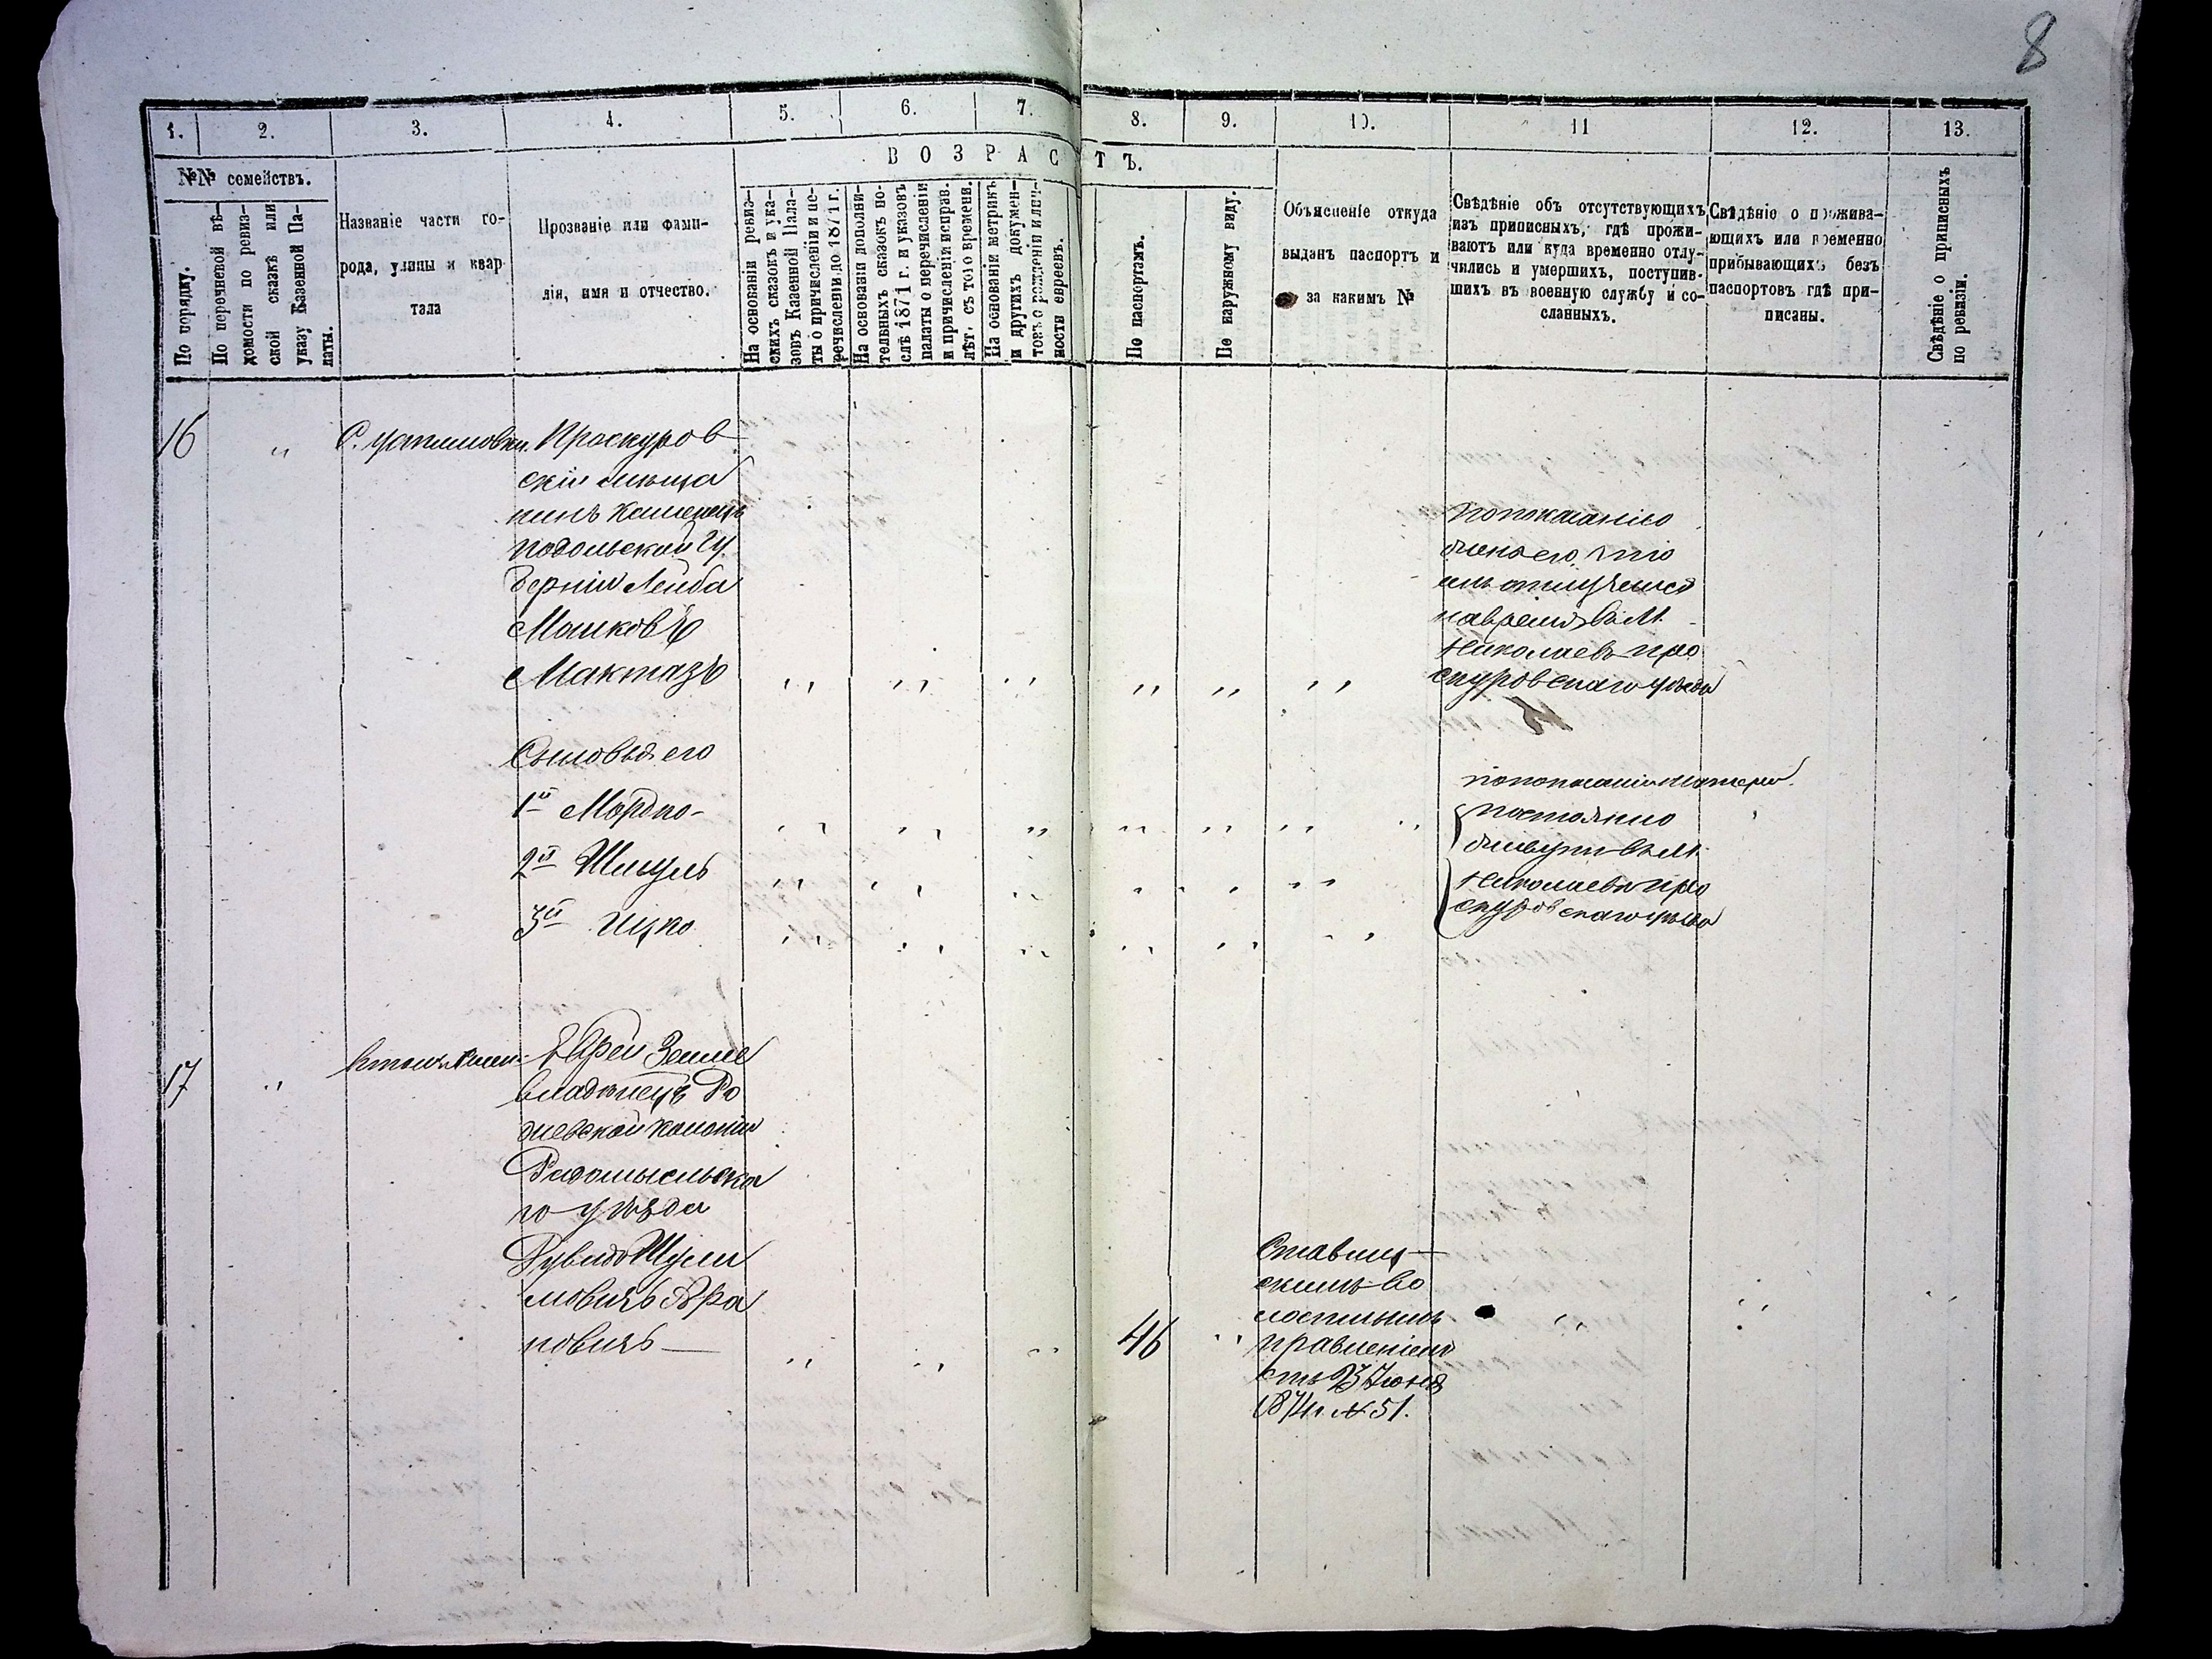 8
1. 2. 3. 4. 5. 6. 7. 8. 9. 10. 11 12. 13.
ВОЗРАСТЪ.
№№ семействъ.
По порядку.
По перечневой вѣ-
домости по ревиз-
ской сказкѣ или
указу Казенной Па-
латы.
Названіе части го-
рода, улицы и квар
тала
Прозваніе или фами-
лія, имя и отчество.
На основаніи ревиз-
скихъ сказокъ и ука-
зовъ Казенной Пала-
ты о причисленіи и пе-
речисленіи до 1871 г.
На основаніи дополни-
тельныхъ сказокъ по-
слѣ 1871 г. и указовъ
палаты о перечисленіи
и причисленіи исправ.
лѣт. съ того времени.
На основаніи метрикъ
и другихъ докумен-
товъ о рожденіи и лич-
ности евреевъ.
По паспортамъ.
По наружному виду.
Объясненіе откуда
выданъ паспортъ и
за какимъ №
Свѣдѣніе объ отсутствующихъ
изъ приписныхъ, гдѣ прожи-
ваютъ или куда временно отлу-
чились и умершихъ, поступив-
шихъ въ военную службу и со-
сланныхъ.
Свѣдѣніе о прожива-
ющихъ или временно
прибывающихъ безъ
паспортовъ гдѣ при-
писаны.
Свѣдѣніе о приписныхъ
по ревизіи.
16 " С. Проскуров-
скій мѣща
нинъ Каменецъ
подольской гу
берніи Лейба
Машковъ
Мактазъ
по показанію
жены его, что
онъ отлучился
на время въ М.
Николаевъ про
скуровскаго уѣзда
Сыновья его
1й Мордко-
2й Шмуль
3й Ицко
по показанію матери
постоянно
живутъ въ М.
Николаевѣ про
скуровскаго уѣзда
17 " Еврей Земле
владѣлецъ Ро
жевской колоніи
Радомысльска
го уѣзда
Рувидъ Шули
мовичъ Ара
новичъ —
46
Ставищ-
скимъ во
лостнымъ
правленіемъ
отъ 23 Іюня
1874 г. № 51.